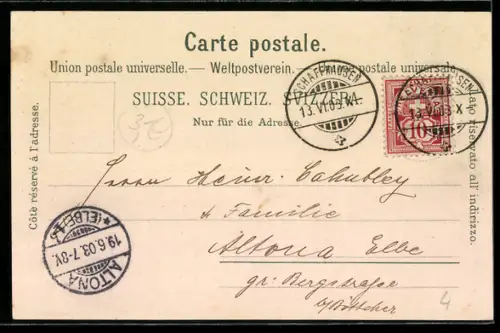 Carte postale.
Union postale universelle. — Weltpostverein. — Unione postale universale
SUISSE. SCHWEIZ. SVIZZERA.
Nur für die Adresse
Côté réservé à l'adresse.
Lato riservato all' indirizzo.
SCHAFFHAUSEN
10
SCHAFFHAUSEN
Herrn Heinr.
& Familie
Altona Elbe
gr. Bergstraße
b/Böttcher
ALTONA
19.6.03.7-8V.
(ELBE)
4